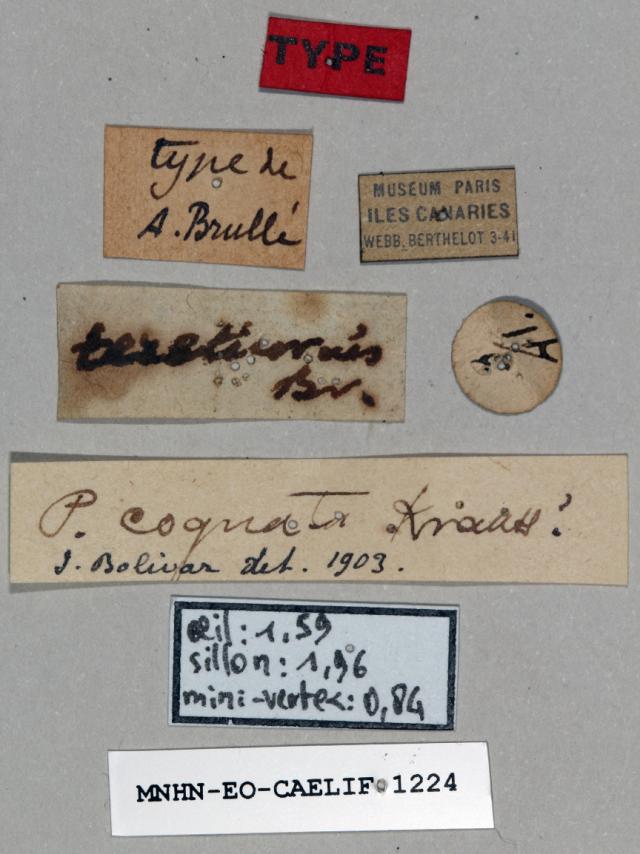 TYPE
type de
A. Brullé
MUSEUM PARIS
ILES CANARIES
WEBB. BERTHELOT 3-41
tereticornis
Br.
P. cognata Krauss?
I. Bolivar det. 1903.
œil: 1,59
sillon: 1,96
mini-vertex: 0,84
MNHN-EO-CAELIF 1224